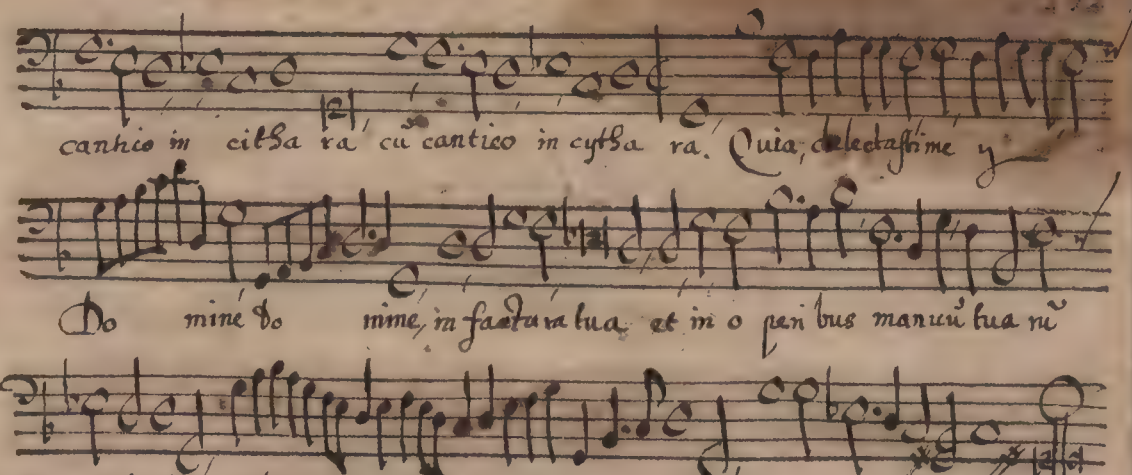 cantico in citha ra cũ cantico in cytha ra. Quia, delectasti me y
Do mine do mine, in factura tua et in o peri bus manuũ tua rũ